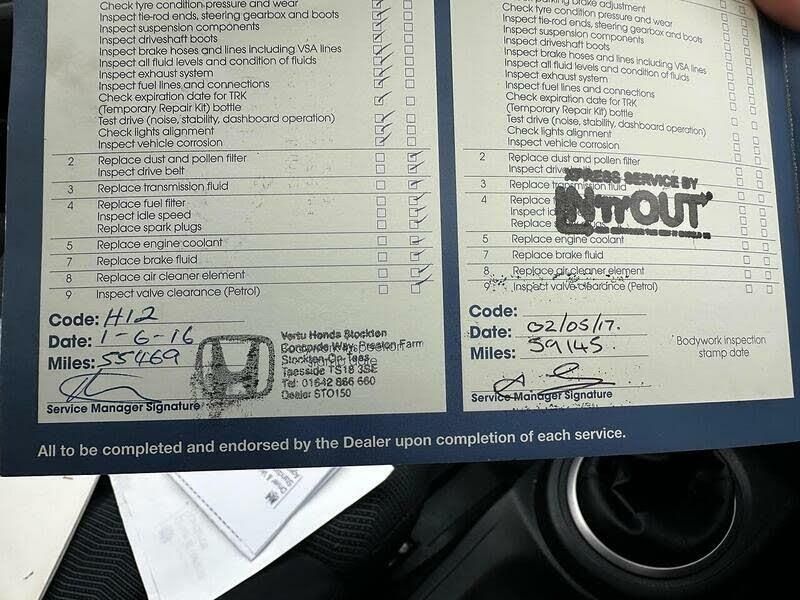 Check tyre condition, pressure and wear
Inspect tie-rod ends, steering gearbox and boots
Inspect suspension components
Inspect driveshaft boots
Inspect brake hoses and lines including VSA lines
Inspect all fluid levels and condition of fluids
Inspect exhaust system
Inspect fuel lines and connections
Check expiration date for TRK
(Temporary Repair Kit) bottle
Test drive (noise, stability, dashboard operation)
Check lights alignment
Inspect vehicle corrosion
2 Replace dust and pollen filter
Inspect drive belt
3 Replace transmission fluid
4 Replace fuel filter
Inspect idle speed
Replace spark plugs
5 Replace engine coolant
7 Replace brake fluid
8 Replace air cleaner element
9 Inspect valve clearance (Petrol)
Code: H12
Date: 1-6-16
Miles: 55469
Service Manager Signature
Vertu Honda Stockton
Concorde Way, Preston Farm
Stockton-On-Tees
Teesside TS18 3SE
Tel: 01642 866 660
Dealer STO150
parking brake adjustment
Check tyre condition, pressure and wear
Inspect tie-rod ends, steering gearbox and boots
Inspect suspension components
Inspect driveshaft boots
Inspect brake hoses and lines including VSA lines
Inspect all fluid levels and condition of fluids
Inspect exhaust system
Inspect fuel lines and connections
Check expiration date for TRK
(Temporary Repair Kit) bottle
Test drive (noise, stability, dashboard operation)
Check lights alignment
Inspect vehicle corrosion
2 Replace dust and pollen filter
Inspect
XPRESS SERVICE BY
3 Replace transmission fluid
4 Replace
IN'n'OUT
Inspect
Replace
5 Replace engine coolant
7 Replace brake fluid
8 Replace air cleaner element
9 Inspect valve clearance (Petrol)
Code:
Date: 02/05/17.
Miles: 59145
Service Manager Signature
* Bodywork inspection
stamp date
All to be completed and endorsed by the Dealer upon completion of each service.